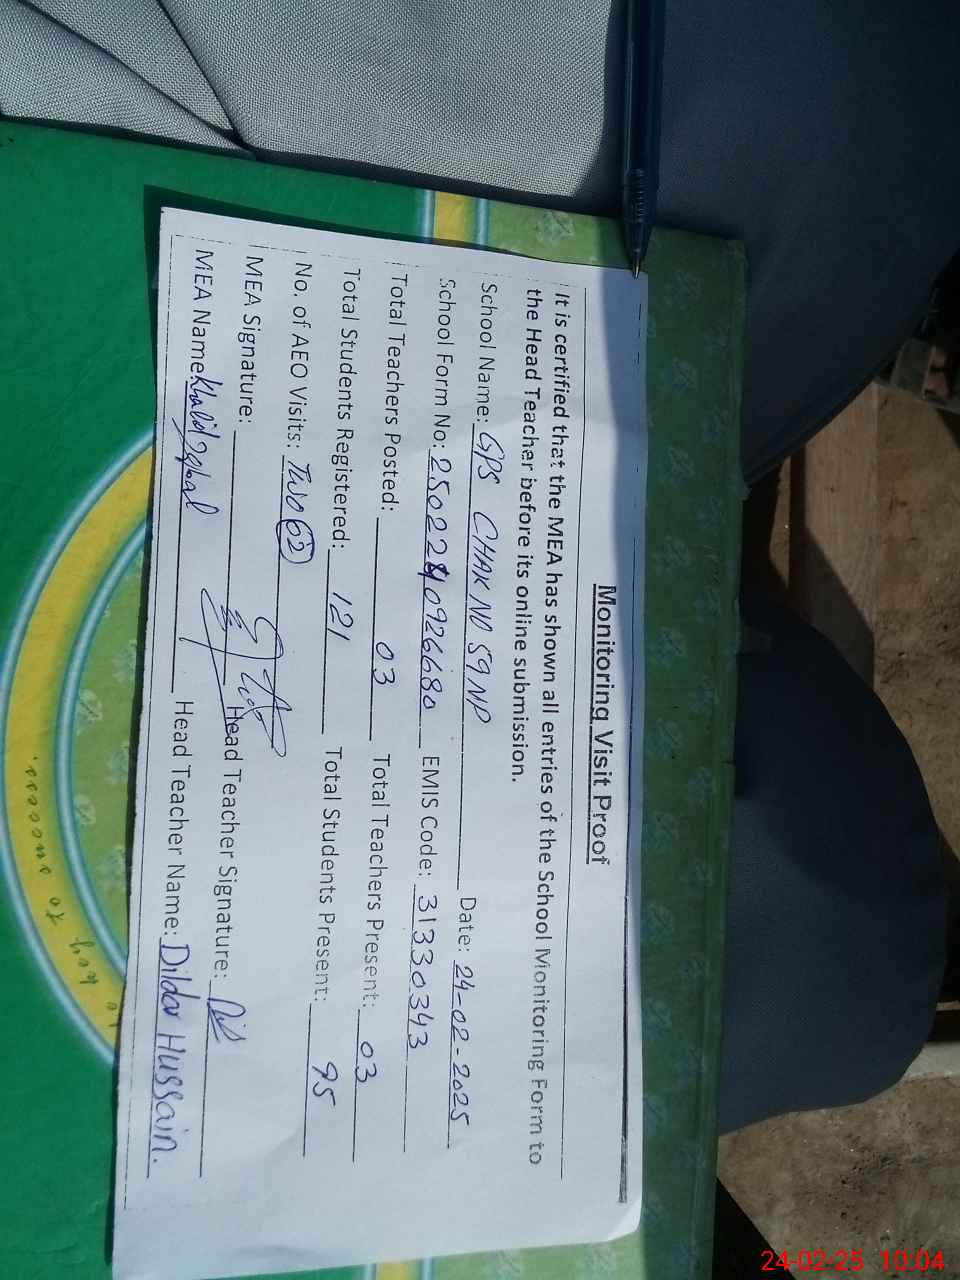 Monitoring Visit Proof
It is certified that the MEA has shown all entries of the School Monitoring Form to
the Head Teacher before its online submission.
School Name: GPS CHAK NO 59 NP Date: 24-02-2025
School Form No: 25022240926680 EMIS Code: 31330343
Total Teachers Posted: 03 Total Teachers Present: 03
Total Students Registered: 121 Total Students Present: 95
No. of AEO Visits: Two 02
MEA Signature: Head Teacher Signature:
MEA Name: Khalid Iqbal Head Teacher Name: Dildar Hussain.
24-02-25 10:04